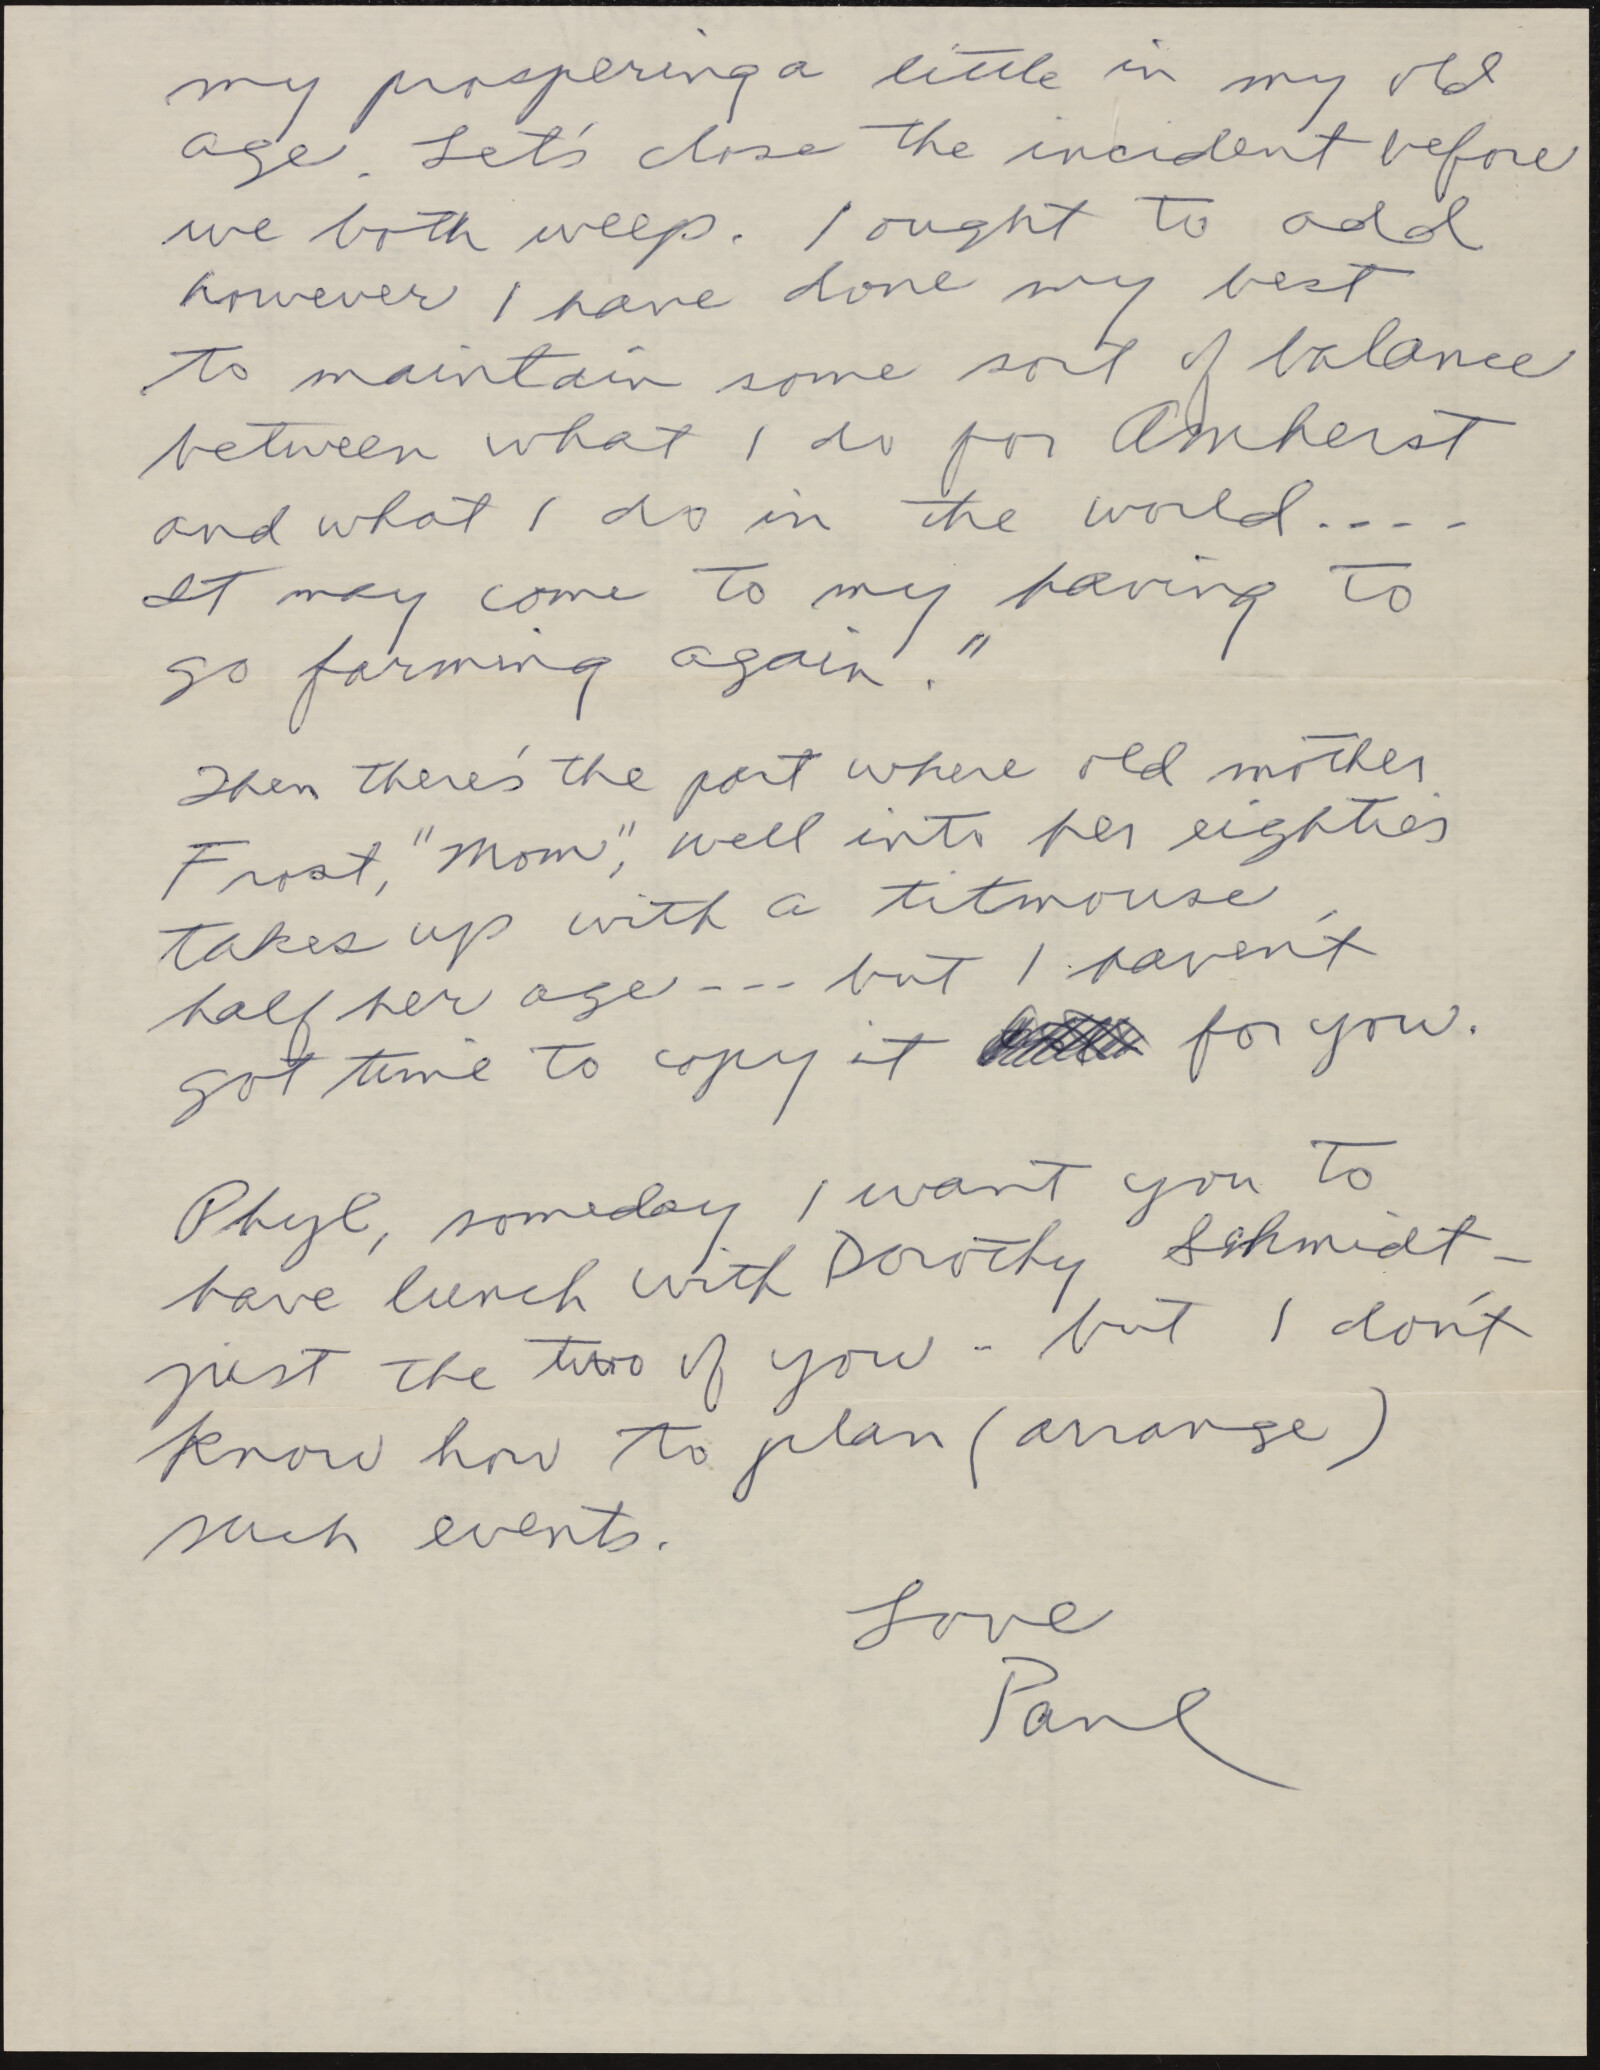 my prospering a little in my old
age. Let's close the incident before
we both weep. I ought to add
however I have done my best
to maintain some sort of balance
between what I do for Amherst
and what I do in the world....
It may come to my having to
go farming again."
Then there's the part where old mother
Frost, "Mom", well into her eighties
takes up with a titmouse
half her age --- but I haven't
got time to copy it for you.
Phyl, someday I want you to
have lunch with Dorothy Schmidt -
just the two of you - but I don't
know how to plan (arrange)
such events.
Love
Paul